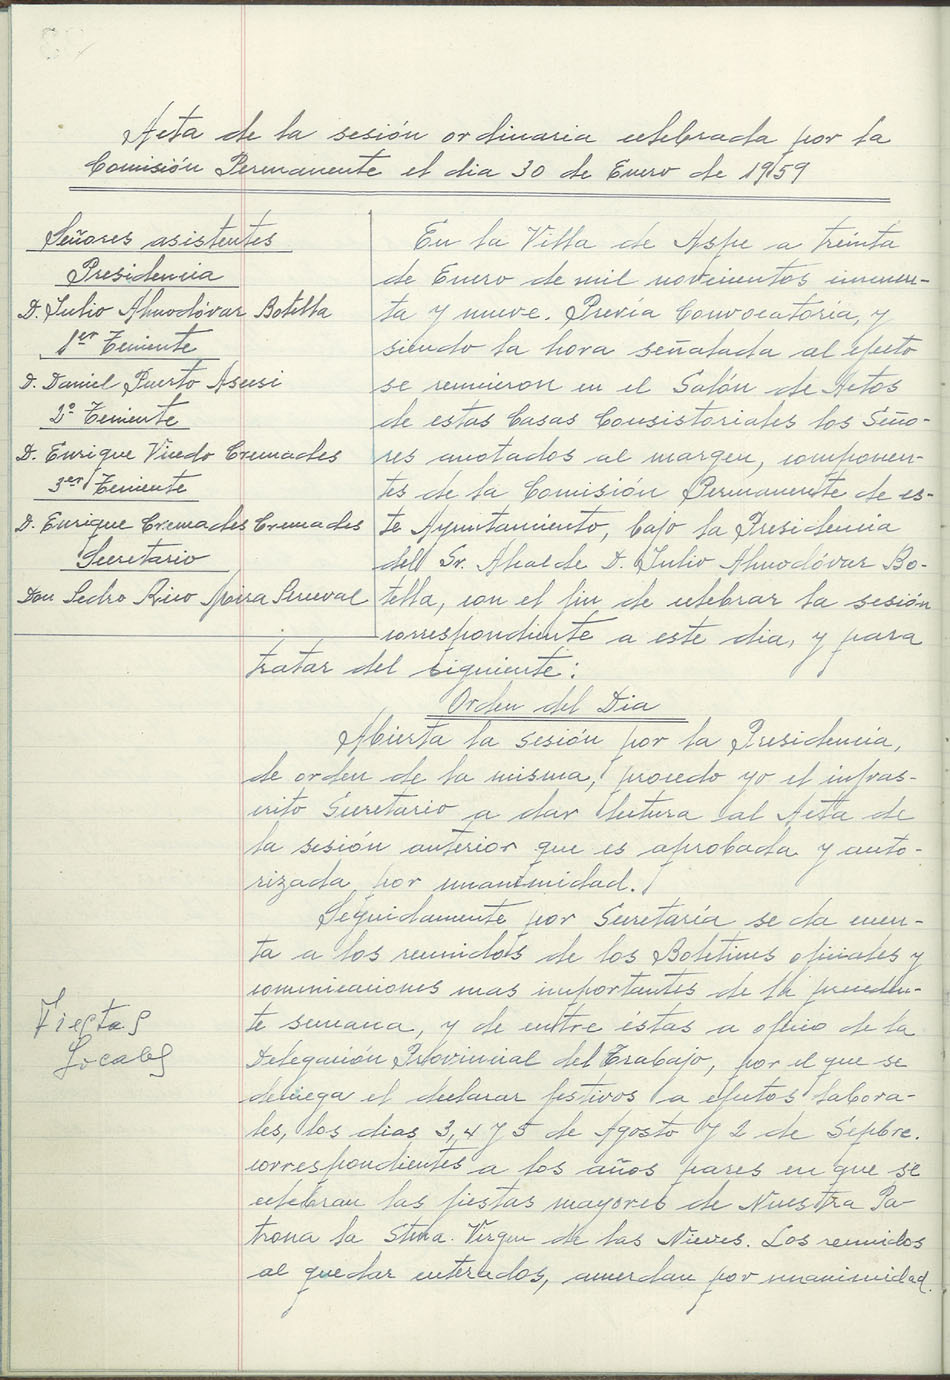 Acta de la sesión ordinaria celebrada por la
Comisión Permanente el dia 30 de Enero de 1959
Señores asistentes
Presidencia
D. Julio Almodóvar Botella
1er Teniente
D. Daniel Puerto Asensi
2º Teniente
D. Enrique Vicedo Cremades
3er Teniente
D. Enrique Cremades Cremades
Secretario
Don Pedro Rico
En la Villa de Aspe a treinta
de Enero de mil novecientos cincuen-
ta y nueve. Previa Convocatoria, y
siendo la hora señalada al efecto
se reunieron en el Salón de Actos
de estas Casas Consistoriales los Seño-
res anotados al margen, componen-
tes de la Comisión Permanente de es-
te Ayuntamiento, bajo la Presidencia
del Sr. Alcalde D. Julio Almodóvar Bo-
tella, con el fin de celebrar la sesión
correspondiente a este dia, y para
tratar del siguiente:
Orden del Dia
Abierta la sesión por la Presidencia,
de orden de la misma, procedo yo el infras-
crito Secretario a dar lectura al Acta de
la sesión anterior que es aprobada y auto-
rizada por unanimidad.
Seguidamente por Secretaría se da cuen-
ta a los reunidos de los Boletines oficiales y
comunicaciones mas importantes de la preceden-
te semana, y de entre éstas a oficio de la
Delegación Provincial del Trabajo, por el que se
deniega el declarar festivos a efectos labora-
les, los dias 3, 4 y 5 de Agosto y 2 de Sepbre.
correspondientes a los años pares en que se
celebran las fiestas mayores de Nuestra Pa-
trona la Stma. Virgen de las Nieves. Los reunidos
al quedar enterados, acuerdan por unanimidad.
Fiestas
Locales